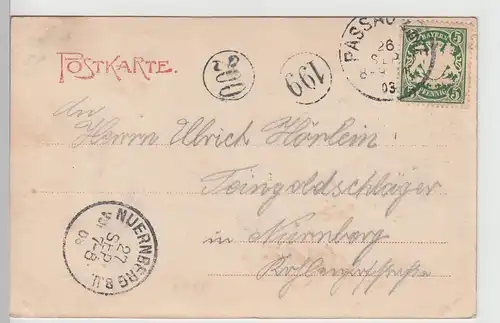 POSTKARTE.
199
PASSAU
26
SEP
8-9
03
BAYERN
5 5
PFENNIG
An
Herrn Ulrich Härlein,
Feingoldschläger
in Nürnberg
NUERNBERG 8.
27
SEP.
7-8
03